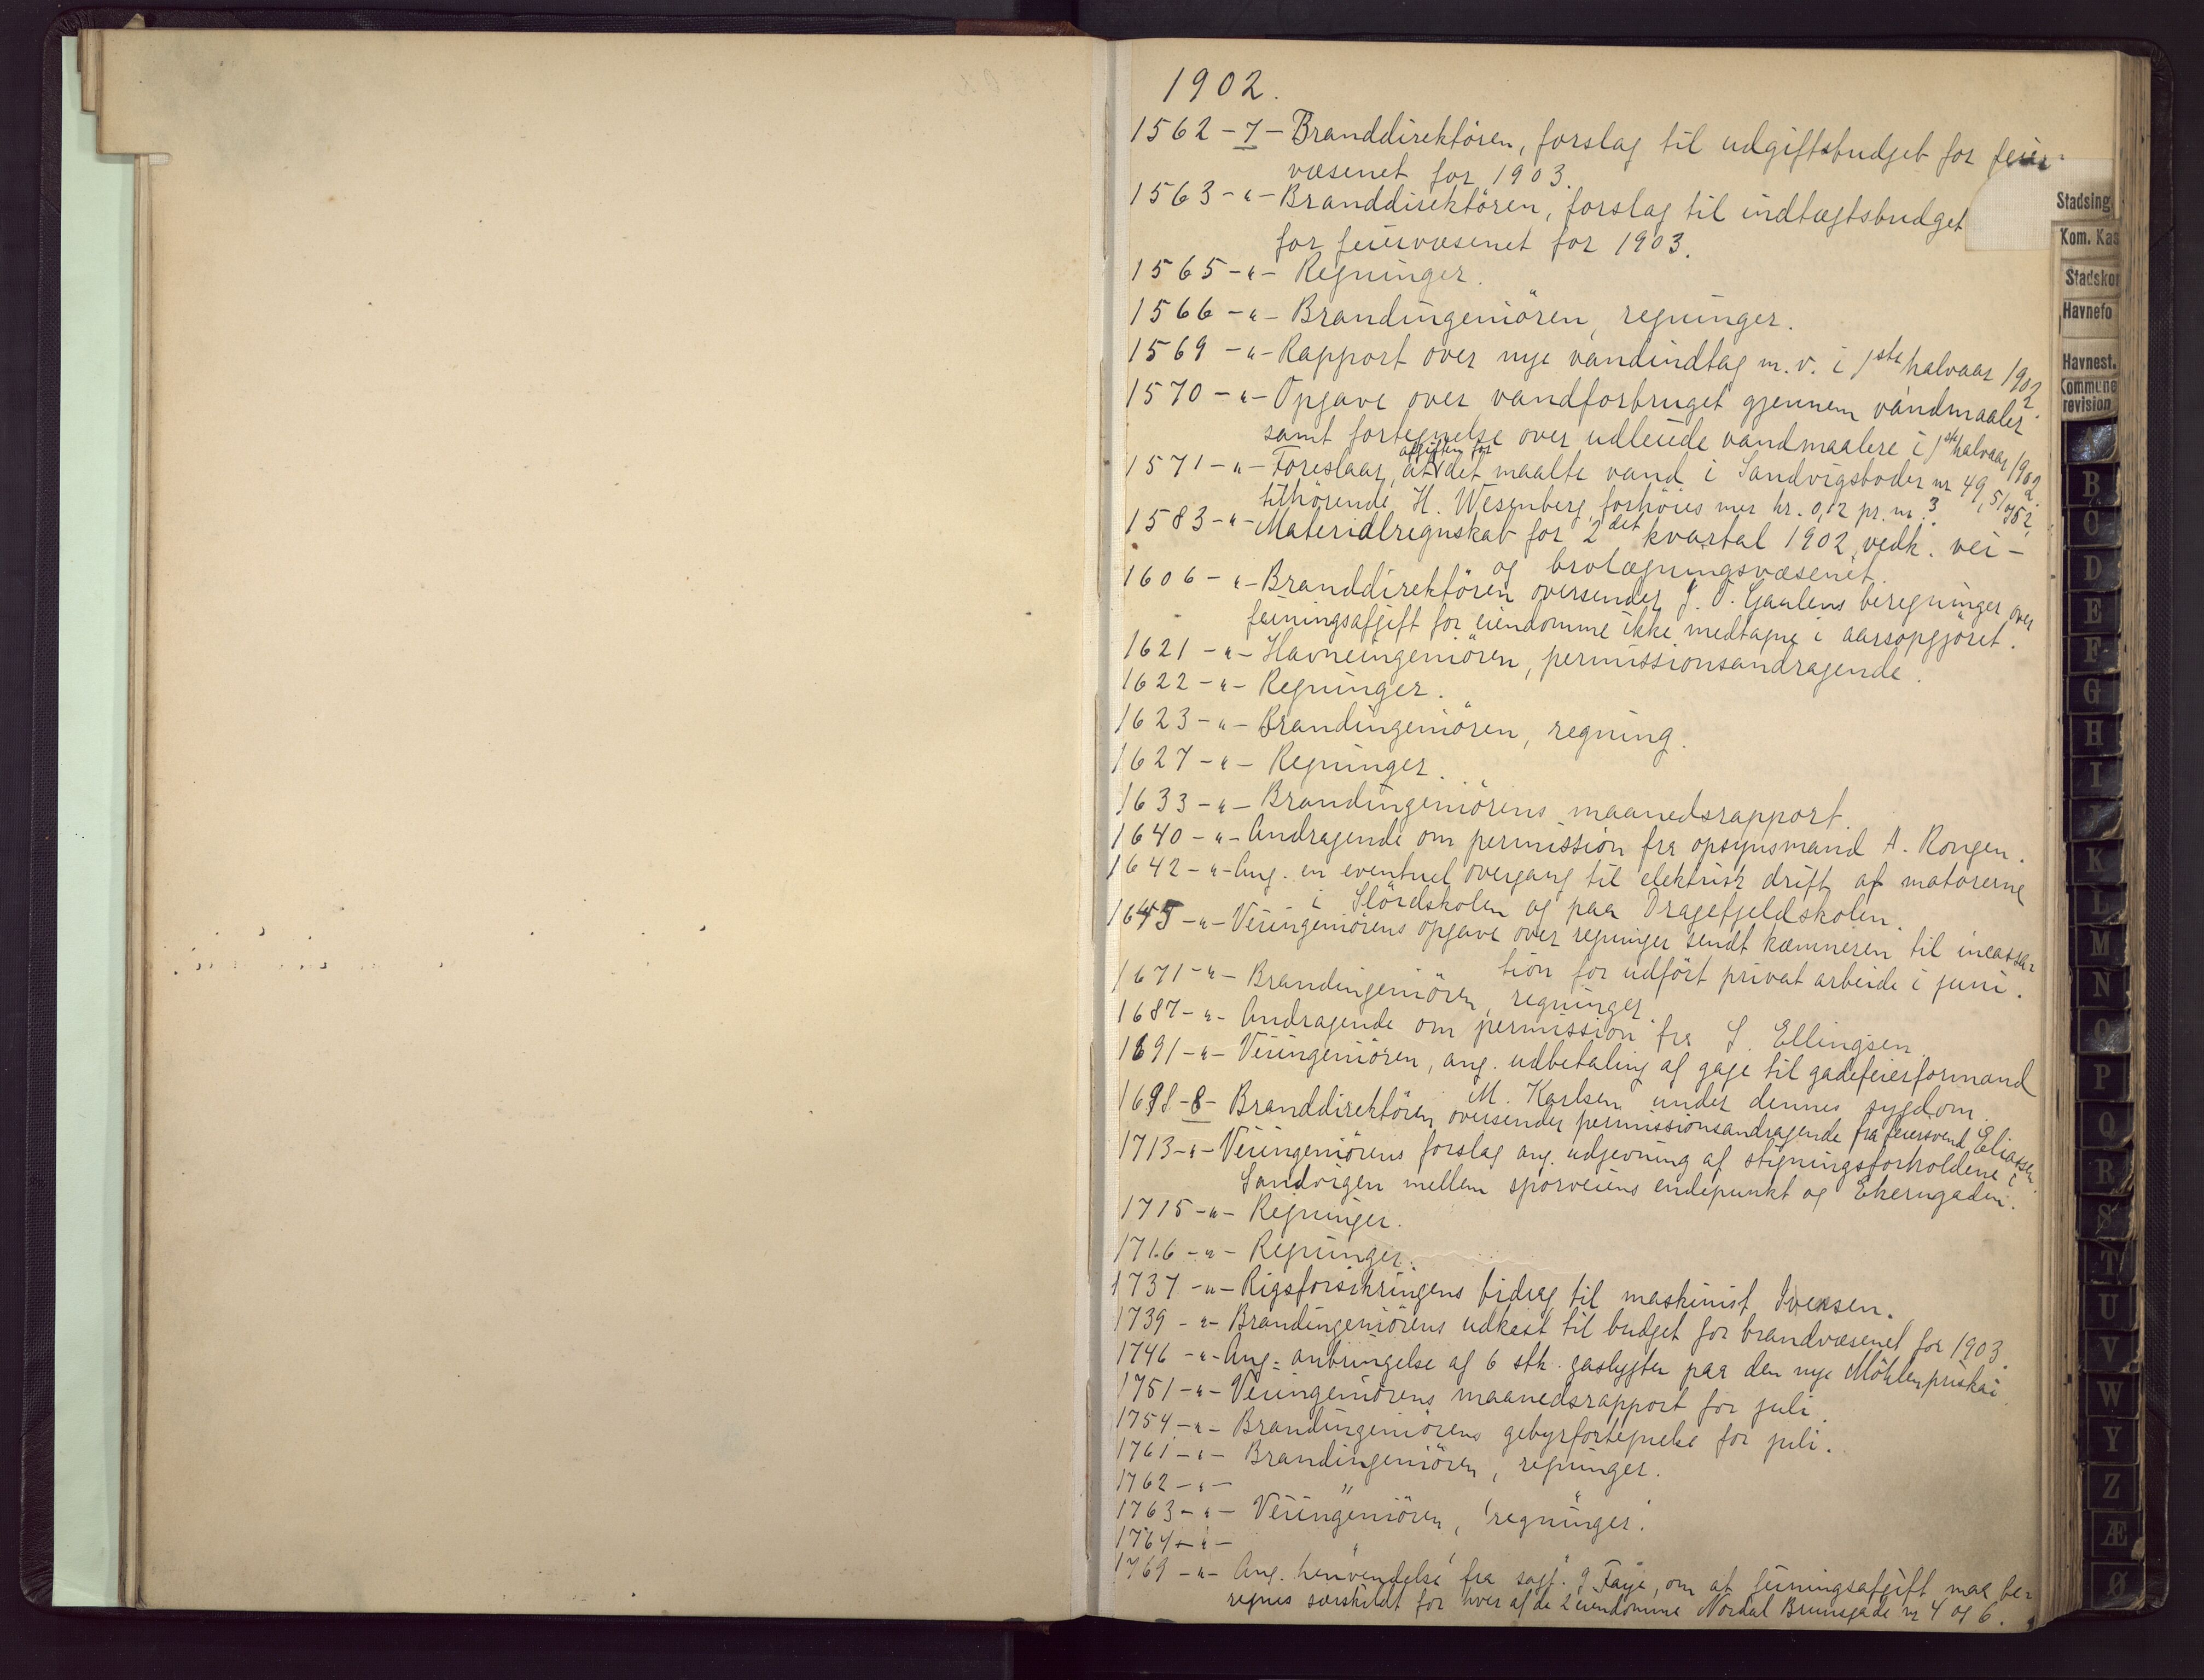 1902.
1562 - 7 - Branddirektören, forslag til udgiftsbudget for feier-
væsenet for 1903.
1563 - " - Branddirektören, forslag til indtægtsbudget
for feiervæsenet for 1903.
1565 - " - Regninger.
1566 - " - Brandingeniören, regninger.
1569 - " - Rapport over nye vandindtag m. v. i 1ste halvaar 1902.
1570 - " - Opgave over vandforbruget gjennem vandmaaler
samt fortegnelse over udleiede vandmaalere i 1ste halvaar 1902.
1571 - " - Foreslaar, at afgiften for det maalte vand i Sandvigsboder nr 49, 51, 52
tilhörende H. Wesenberg forhöies mer kr. 0,12 pr. m3.
1583 - " - Materialregnskab for 2det kvartal 1902, vedk. vei-
og brolægningsvæsenet.
1606 - " - Branddirektören oversender J. O. Gaulens beregninger over
feiningsafgift for eiendomme ikke medtagne i aarsopgjöret.
1621 - " - Havneingeniören, permissionsandragende.
1622 - " - Regninger.
1623 - " - Brandingeniören, regning.
1627 - " - Regninger.
1633 - " - Brandingeniörens maanedsrapport.
1640 - " - Andragende om permission fra opsynsmand A. Rongen.
1642 - " - Ang. en eventuel overgang til elektrisk drift af motorerne
i Slöidskolen og paa Dragefjeldskolen.
1645 - " - Veiingeniörens opgave over regninger sendt kæmneren til incassa-
tion for udfört privat arbeide i juni.
1671 - " - Brandingeniören, regninger.
1687 - " - Andragende om permission fra S. Ellingsen.
1691 - " - Veiingeniören, ang. udbetaling af gage til gadefeierformand
M. Karlsen under dennes sygdom.
1698 - 8 - Branddirektören oversender permissionsandragende fra feiersvend Eliassen.
1713 - " - Veiingeniörens forslag ang. udjevning af stigningsforholdene i
Sandvigen mellem sporveiens endepunkt og Ekerngaden.
1715 - " - Regninger.
1716 - " - Regninger.
1737 - " - Rigsforsikringens bidrag til maskinist Iversen.
1739 - " - Brandingeniörens udkast til budget for brandvæsenet for 1903.
1746 - " - Ang. anbringelse af 6 stk. gaslygter paa den nye Möhlenpriskai
1751 - " - Veiingeniörens maanedsrapport for juli.
1754 - " - Brandingeniörens gebyrfortegnelse for juli.
1761 - " - Brandingeniören, regninger.
1762 - " - " "
1763 - " - Veiingeniören, regninger.
1764 - " - " "
1769 - " - Ang. henvendelse fra sagf. J. Faye, om at feiningsafgift maa be-
regnes særskildt for hver af de 2 eiendomme Nordal Brunsgade nr 4 og 6.
Stadsing.
Kom. Kas
Stadskon
Havnefo
Havnest.
Kommune
revision
A
B
C
D
E
F
G
H
I
J
K
L
M
N
O
P
Q
R
S
T
U
V
W
Y
Z
Æ
Ø